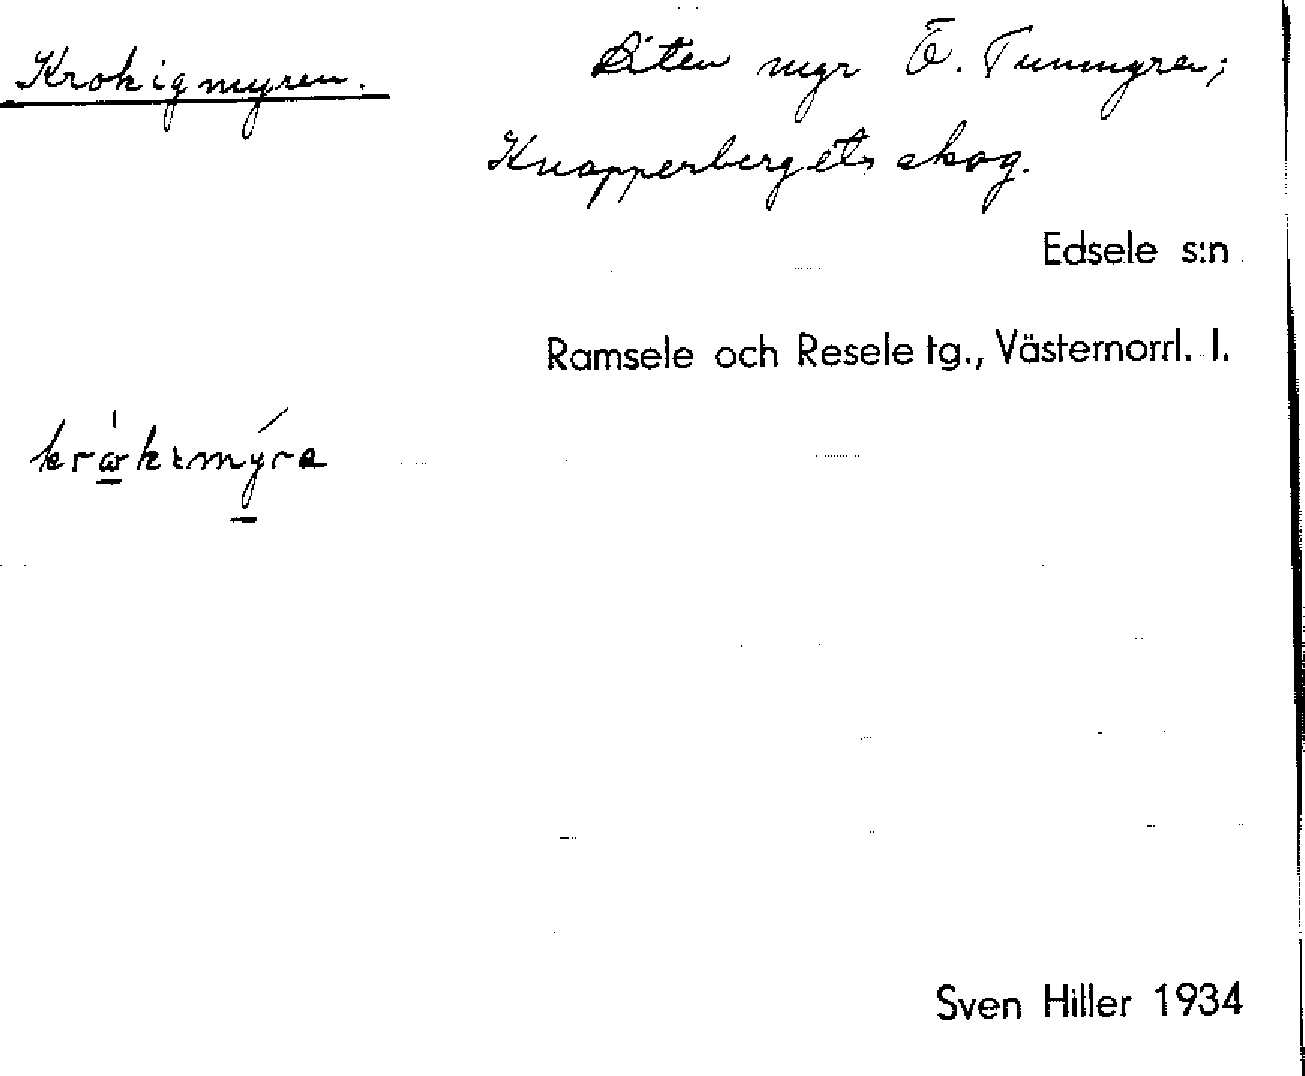 Krokigmyren.
Liten myr Ö. Tunmyren;
Knapperbergets skog.
Edsele s:n
Ramsele och Resele tg., Västernorrl. l.
Sven Hiller 1934